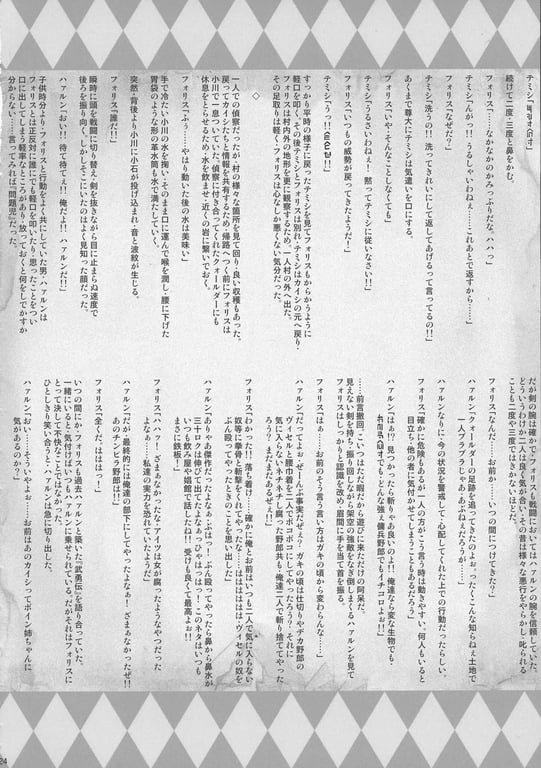 テミシ「ﾁｰﾝｯ!!」
続けて二度、三度と鼻をかむ。
フォリス「……なかなかのかみっぷりだな。ハハッ」
テミシ「んがっ!! うるしゃいわねぇ……これあとで返すから……」
フォリス「なぜだ？」
テミシ「洗うの!! 洗ってきれいにして返してあげるって言ってるの!!」
あくまで尊大にテミシは気遣いを口にする。
フォリス「いや、そんなことしなくても」
テミシ「うるさいわねぇ! 黙ってテミシに従いなさい!!」
フォリス「いつもの威勢が戻ってきたようだ!」
テミシ「うっ!!
すっかり平時の様子に戻ったテミシを見て、フォリスもからかうように
軽口を叩く。その後テミシとフォリスは別れ、テミシはカイシの元へ戻り、
フォリスは村内外の地形を更に観察するため、一人村の外へ出た。
その足取りは軽く、フォリスは心なしか悪くない気分だった。
◇
一人での偵察だったが、村の様々な箇所を見て回り、良い収穫もあった。
戻ってカイシたちと情報を共有するため、帰路へつく前にフォリスは
小川で一息ついていた。偵察に付き合ってくれたクォールダーにも
休息をとらせるため、水を飲ませ、近くの岩に繋いでおく。
フォリス「ふぅ……やはり動いた後の水は美味い」
手で冷たい小川の水を掬い、そのまま口に運んで喉を潤し、腰に下げた
胃袋のような形の革水筒も水で満たしていく。
突然、背後より小川に小石が投げ込まれ、音と波紋が生じる。
フォリス「誰だ!!」
瞬時に頭を戦闘に切り替え、剣を抜きながら目に止まらぬ速度で
後ろを振り向く。しかしそこにいたのはよく見知った顔だった。
ハァルン「おい!! 待て待てぇ!! 俺だよ!! ハァルンだ!!」
子供時分より、フォリスと行動をよく共にしていた男、ハァルンは
フォリスとは正反対に誰にでも軽口を叩いたり、思ったことをつい
口に出してしまう軽率なところがあり、放っておくと何をしでかすか
分からない……言ってみれば「問題児」だった。
だが剣の腕は確かで、フォリスも戦闘においてはハァルンの腕を信頼していた。
どういうわけか二人は良く気が合い、その昔は様々な悪行をやらかし、叱られる
ことも二度や三度ではきかないほどだ。
フォリス「なんだ……お前か……いつの間につけてきたな？」
ハァルン「クォールダーの足跡を追ってきたのよぉ。ったくこんな知らねぇ土地で
一人プラプラじゃあぶねぇだろうが……」
ハァルンなりに、今の状況を警戒して、心配してくれた上での行動だったらしい。
フォリス「確かに危険もあるが一人の方がこう言う時は動きやすい。何人もいると
目立ち、他の者に気付かせてしまうこともあるだろう」
ハァルン「はぁ!? 見つかったら斬りゃあ良いのよ!! 俺達なら変な生物でも、
でも、どんな強ぇ傭兵野郎でもイチコロよぉ!!」
……前言撤回。こいつはただ暇だから遊びに来ただけの阿呆だ。
見えない剣を持ち、振り回しながら架空の強敵をなぎ倒しまくるハァルンを見て
フォリスはしっかりと認識を改め、眉間に手を当て首を振る。
フォリス「はぁ……お前のそう言う言い方はガキの頃から変わらんな……」
ハァルン「だってよぉ、ぜーんぶ事実だぜぇ? ガキの頃は仕切りやデカ野郎の
ヴィセルと腰巾着を二人でボコボコにしてやったろう!? それに
気に入らないネチネチした腐った野郎共も、俺達二人で斬り捨ててやった
ろう? まだまだあるぜぇ!!」
フォリス「わかった!! 落ち着け……確かに俺とお前はいつも二人で気に入らない
奴等に拳骨と斬撃をくれてやったな……ははははははは、ヴィセルの奴を
ぶん殴ってやったときのこと思い出した」
ハァルン「ありゃあ傑作だったよなぁ、ぶはっ!! ぶん殴ってやったら鼻から鼻水が
三十ロクは伸びて出てたよなぁっひゃはっはっ! このネタはいつも
いつも飲み屋や娼館で話したね!! 受けも良くて最高よぉ!!
まさに鉄板!」
フォリス「ハハッ! ざまぁなかったなアイツは女が腐ったようなやつだった
よなぁ……私達の実力を恐れていたようだ」
ハァルン「だが、最終的には俺達の部下にしてやったよなぁ! ざまぁなかったぜ!!
あのチンピラ野郎は!!」
フォリス「全くだ。はははっ!」
いつの間にか、フォリスも過去、ハァルンと築いた『武勇伝』を語り合っていた。
一緒にいると、気付けばいつもハァルンに乗せられている。だがそれはフォリスに
とって決して不快なことではなかった。
ひとしきり笑い合うと、ハァルンは急に切り出す。
ハァルン「おい、そういやよぉ……お前はあのカイシってボイン姉ちゃんに
気があるのか？」
24